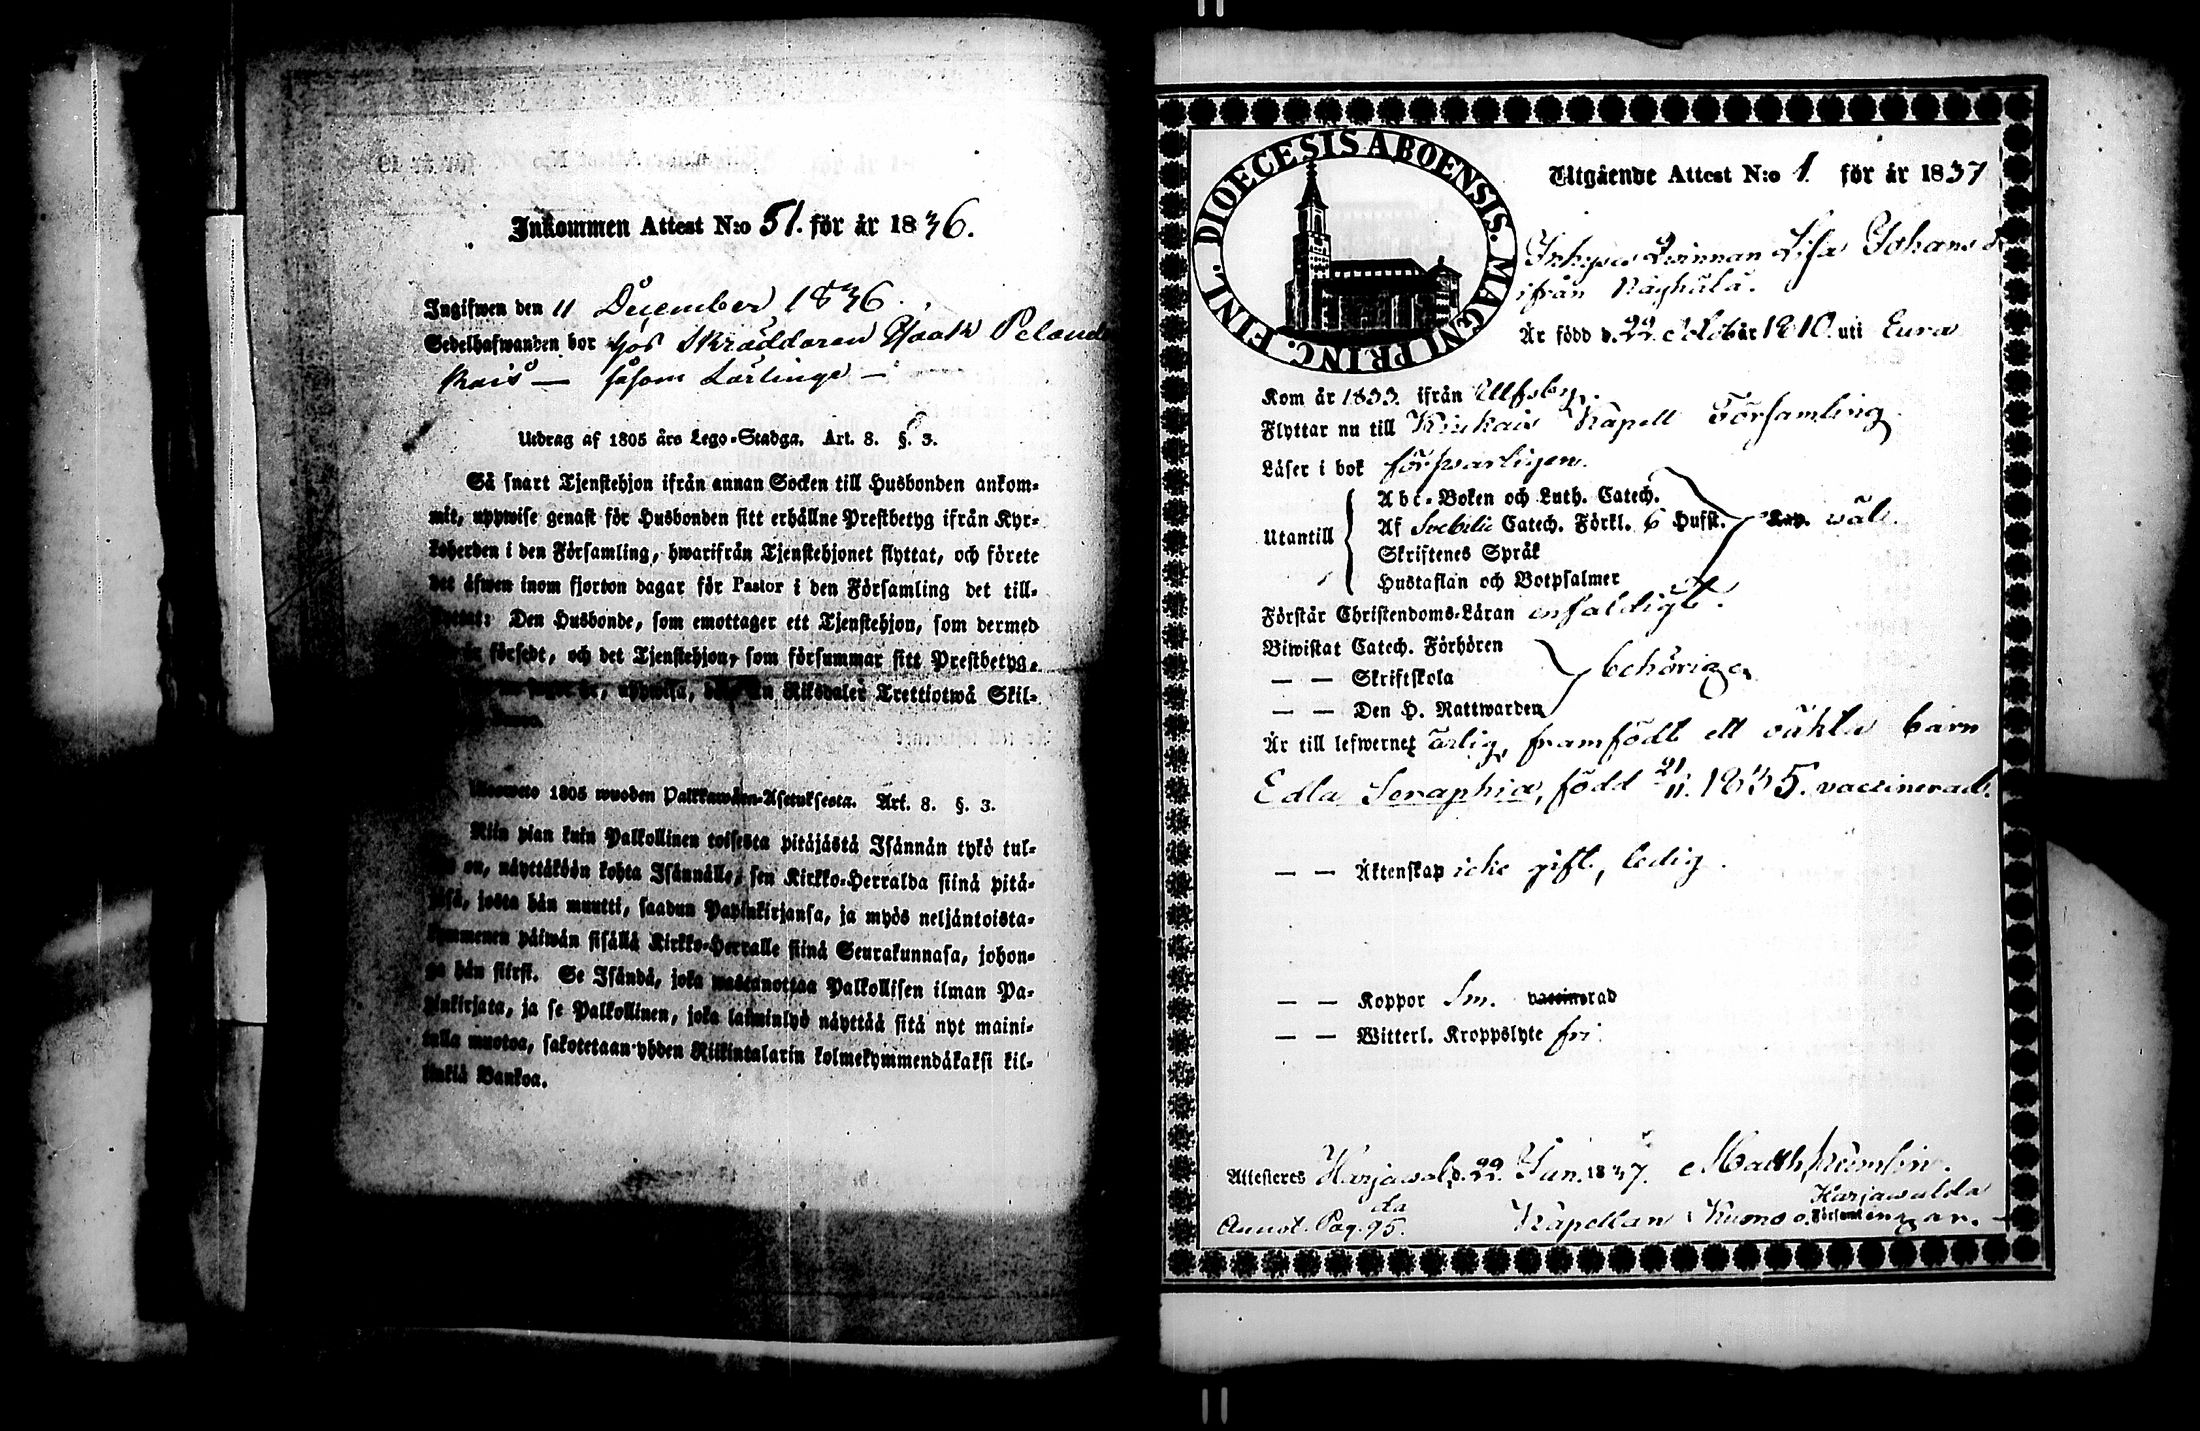 Inkommen Attest N:o 51. för år 1836.
Ingifwen den 11 December 1836.
Sedelhafwanden bor hos Skräddaren Isaak
såsom Lärlinge —
Utdrag af 1805 års Lego-Stadga. Art. 8. §. 3.
Så snart Tjenstehjon ifrån annan Socken till Husbonden ankom-
mit, uppwise genast för Husbonden sitt erhållne Prestbetyg ifrån Kyr-
koherden i den Församling, hwarifrån Tjenstehjonet flyttat, och förete
det äfwen inom fjorton dagar för Pastor i den Församling det till-
Den Husbonde, som emottager ett Tjenstehjon, som dermed
försedt, och det Tjenstehjon, som försummar sitt Prestbetyg,
uppwisa, Riksdaler Trettiotwå Skil-
1805 wuoden Palkkawäen-Asetuksesta. Art. 8. §. 3.
Niin pian kuin Palkollinen toisesta pitäjästä Isännän tykö tul-
on, näyttäköön kohta Isännälle, sen Kirkko-Herralda siinä pitä-
jäsä, josta hän muutti, saadun Papinkirjansa, ja myös neljäntoista-
kymmenen päiwän sisällä Kirkko-Herralle siinä Seurakunnasa, johon-
ga hän siirsi. Se Isändä, joka wastanottaa Palkollisen ilman Pa-
pinkirjata, ja se Palkollinen, joka laiminlyö näyttää sitä nyt maini-
tulla muotoa, sakotetaan yhden Riikintalarin kolmekymmendäkaksi kil-
linkiä Bankoa.
DIOECESIS ABOENSIS. MAGNI PRINC. FINL.
Utgående Attest N:o 1. för år 1837
Inhyses Qwinnan Lisa Johans d.
ifrån
Är född d. 22 Octob år 1810. uti Eura
Kom år 1833. ifrån Ulfsby.
Flyttar nu till Kiukais Kapell Församling.
Läser i bok förswarligen.
Utantill
Abc-Boken och Luth. Catech.
Af Svebilii Catech. Förkl. 6 Hufst. wäl.
Skriftenes Språk
Hustaflan och Botpsalmer
Förstår Christendoms-Läran enfaldigt.
Biwistat Catech. Förhören
— — Skriftskola behörigen
— — Den H. Nattwarden
Är till lefwernet ärlig, framfödt ett oäkta barn
Edla Seraphia, född 21/11. 1835. vaccinerad.
— — Äktenskap icke gift, ledig.
— — Koppor Sm. vaccinerad
— — Witterl. Kroppslyte fri.
Attesteras Harjawalda d. 22 Jun. 1837. Matth
Annot. Pag. 95.
Kapellan i Kumo o. Harjawalda Församlingar.